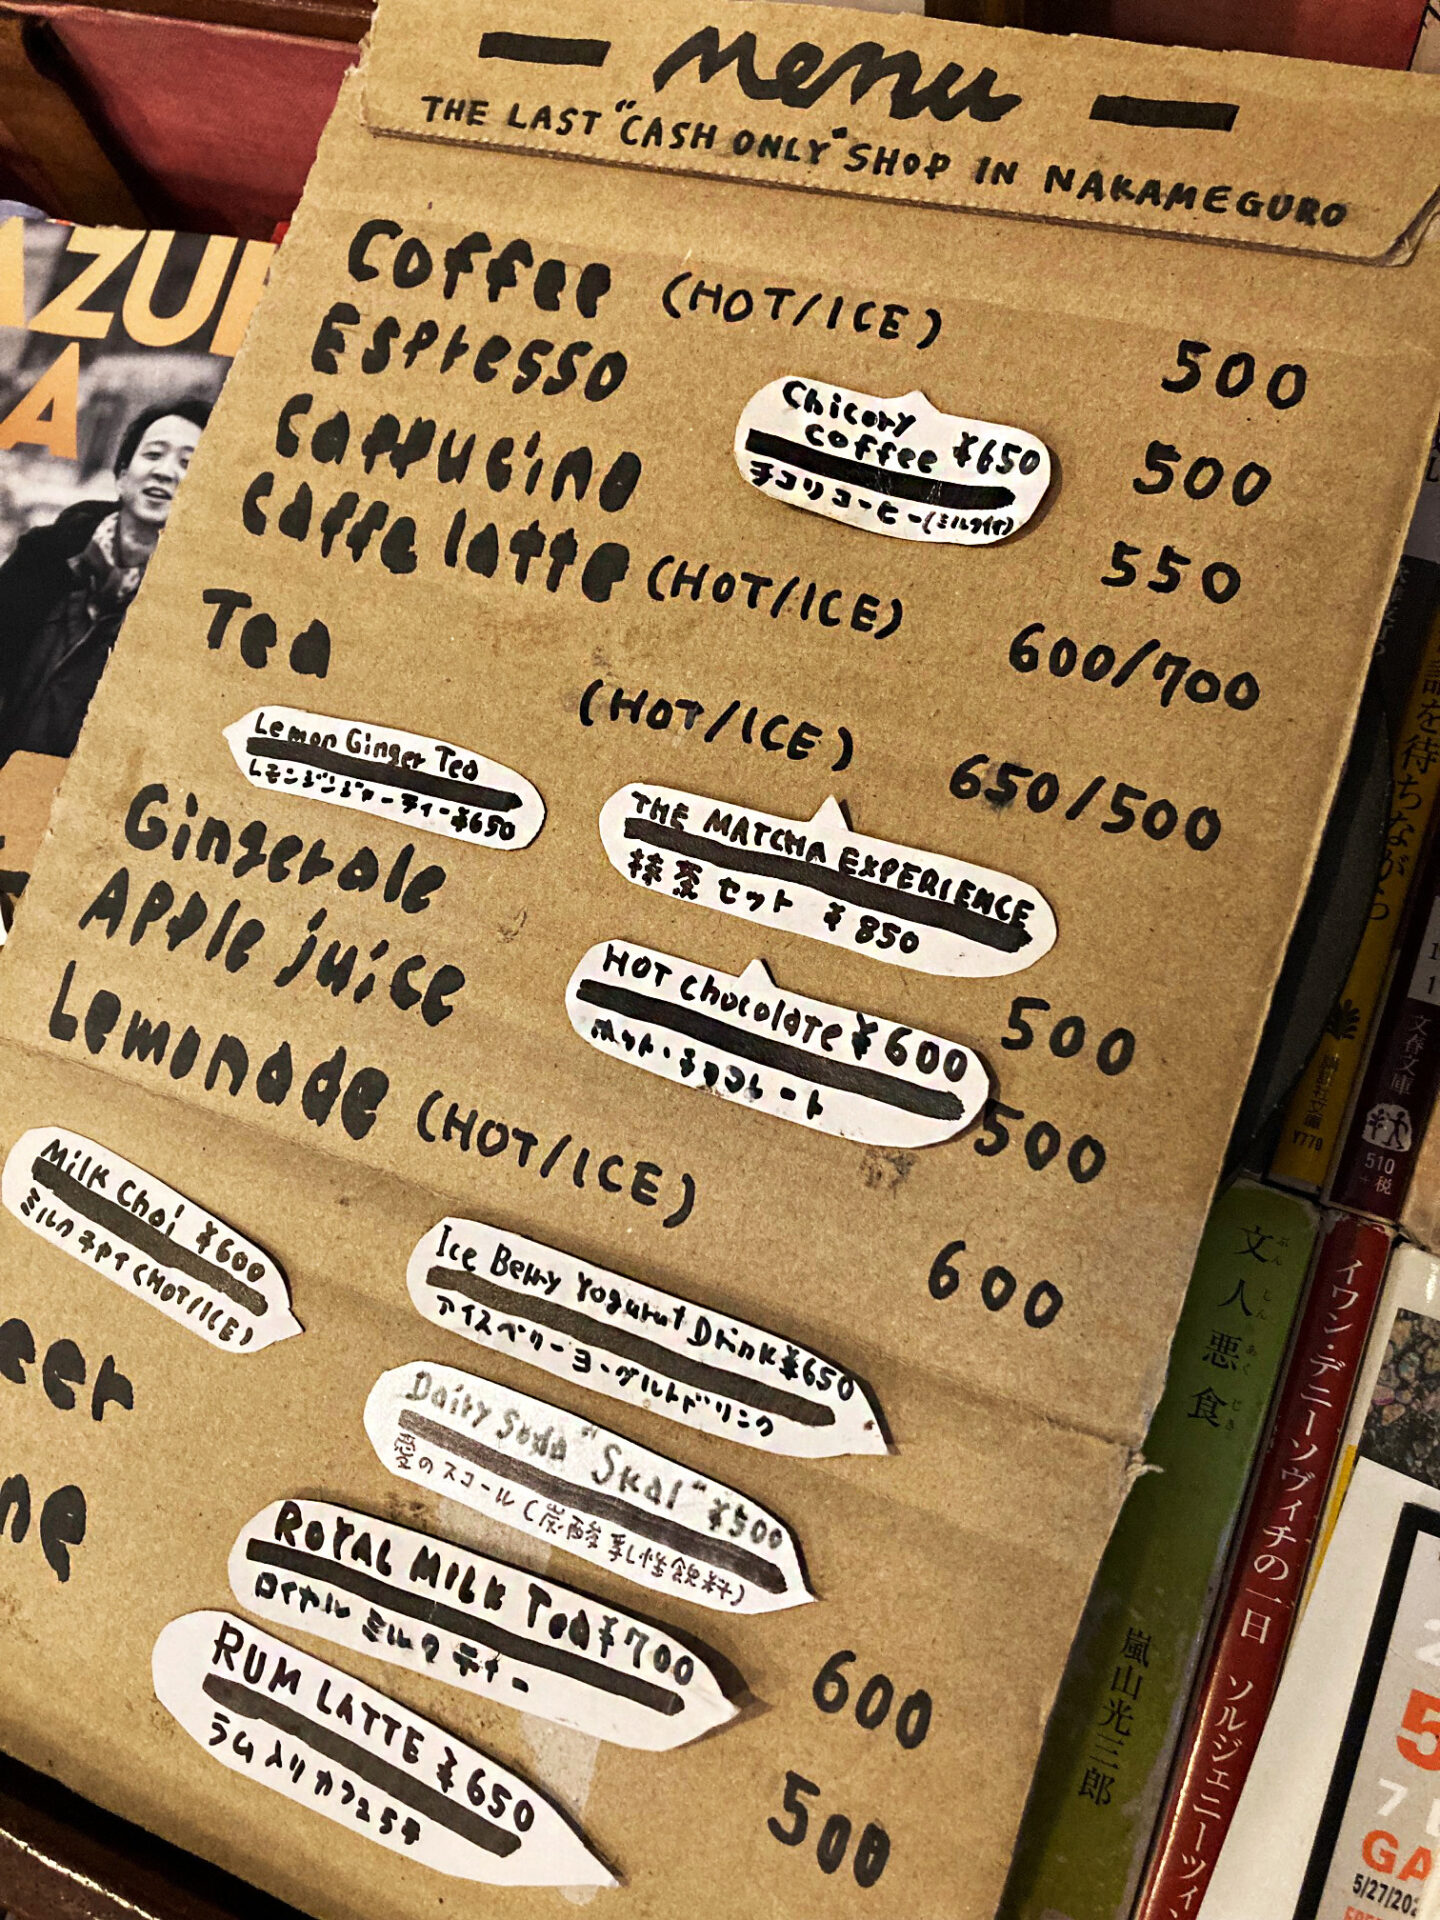 menu
THE LAST "CASH ONLY" SHOP IN NAKAMEGURO
Coffee (HOT/ICE) 500
Espresso 500
Chicory coffee ¥650
チコリコーヒー(ミルク付)
Cappucino 550
Caffe latte (HOT/ICE) 600/700
Tea (HOT/ICE) 650/500
Lemon Ginger Tea
レモンジンジャーティー¥650
THE MATCHA EXPERIENCE
抹茶セット ¥850
Gingerale 500
HOT chocolate ¥600
ホット・チョコレート
Apple juice 500
Lemonade (HOT/ICE) 600
Milk Chai ¥600
ミルクチャイ(HOT/ICE)
Ice Berry Yogurut Drink ¥650
アイスベリーヨーグルトドリンク
Dairy Soda "Skal" ¥500
愛のスコール(炭酸乳性飲料)
eer 600
ROYAL MILK Tea ¥700
ロイヤルミルクティー
ne 500
RUM LATTE ¥650
ラム入りカフェラテ
AZU
A
を待ちながら
¥770
文春文庫
510
+税
文人悪食
ぶんじんあくじき
嵐山光三郎
イワン・デニーソヴィチの一日 ソルジェニーツィン
5
7
GA
5/27/202